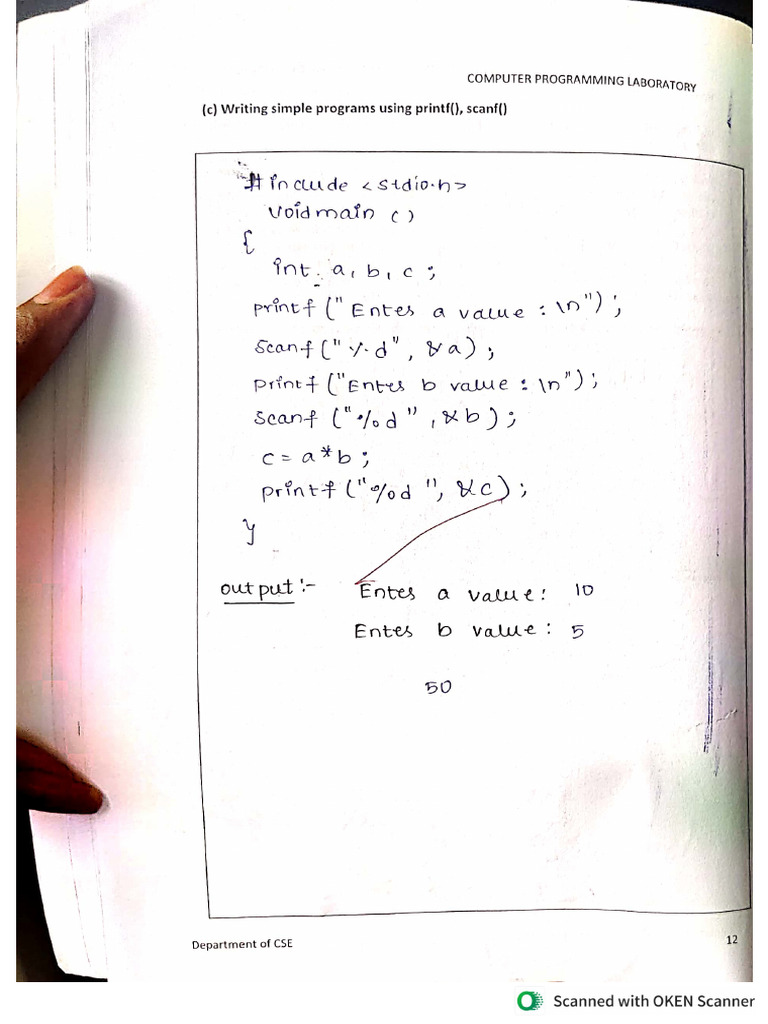 COMPUTER PROGRAMMING LABORATORY
(c) Writing simple programs using printf(), scanf()
# include <stdio.h>
void main ()
{
int a, b, c ;
printf ("Enter a value : \n") ;
Scanf ("%d", &a) ;
printf ("Enter b value : \n") ;
Scanf ("%d", &b) ;
c = a*b ;
printf ("%d", &c) ;
}
output :-  Enter a value : 10
Enter b value : 5
50
Department of CSE
12
Scanned with OKEN Scanner